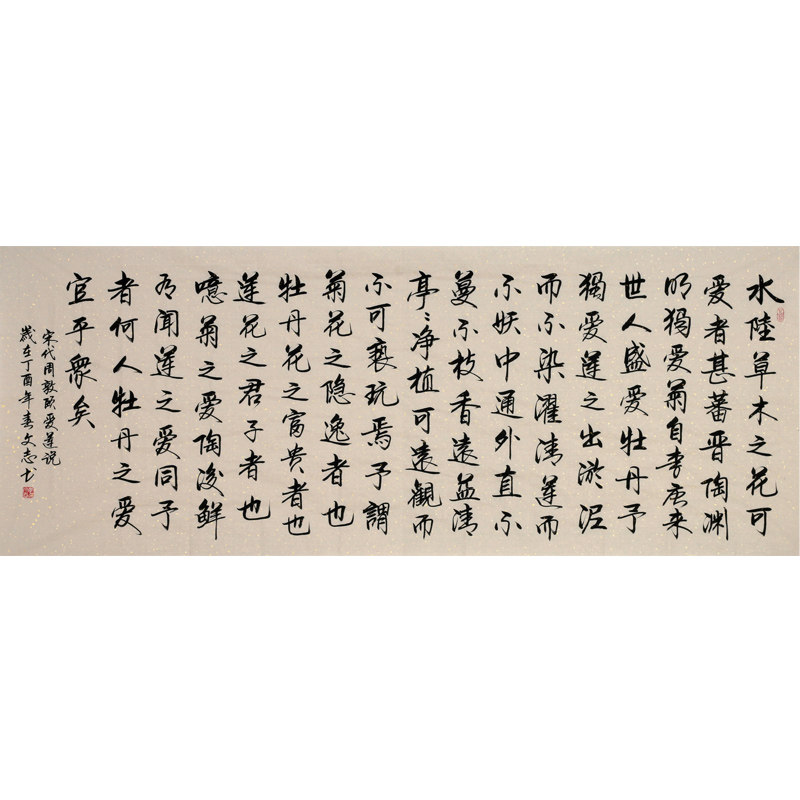 水陸草木之花可
爱者甚蕃晋陶渊
明獨爱菊自李唐来
世人盛爱牡丹予
獨爱蓮之出淤泥
而不染濯清蓮而
不妖中通外直不
蔓不枝香遠益清
亭〻净植可遠觀而
不可亵玩焉予謂
菊花之隐逸者也
牡丹花之富贵者也
蓮花之君子者也
噫菊之爱陶後鲜
有聞蓮之爱同予
者何人牡丹之爱
宜乎衆矣
宋代周敦颐爱蓮说
歲在丁酉年春文志书